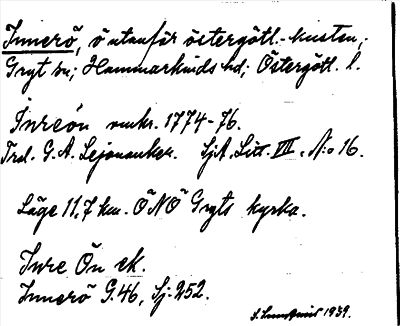 Innerö, ö utanför östergötl.-kusten,
Gryt sn; Hammarkinds hd; Östergötl. l.
Inreön omkr. 1774-76.
Trol. G. A. Lejonanker. SjA. Litt. VII, N:o 16.
Läge 11,7 km. ÖNÖ Gryts kyrka.
Inre Ön ek.
Innerö G.46, Sj. 252.
1939.